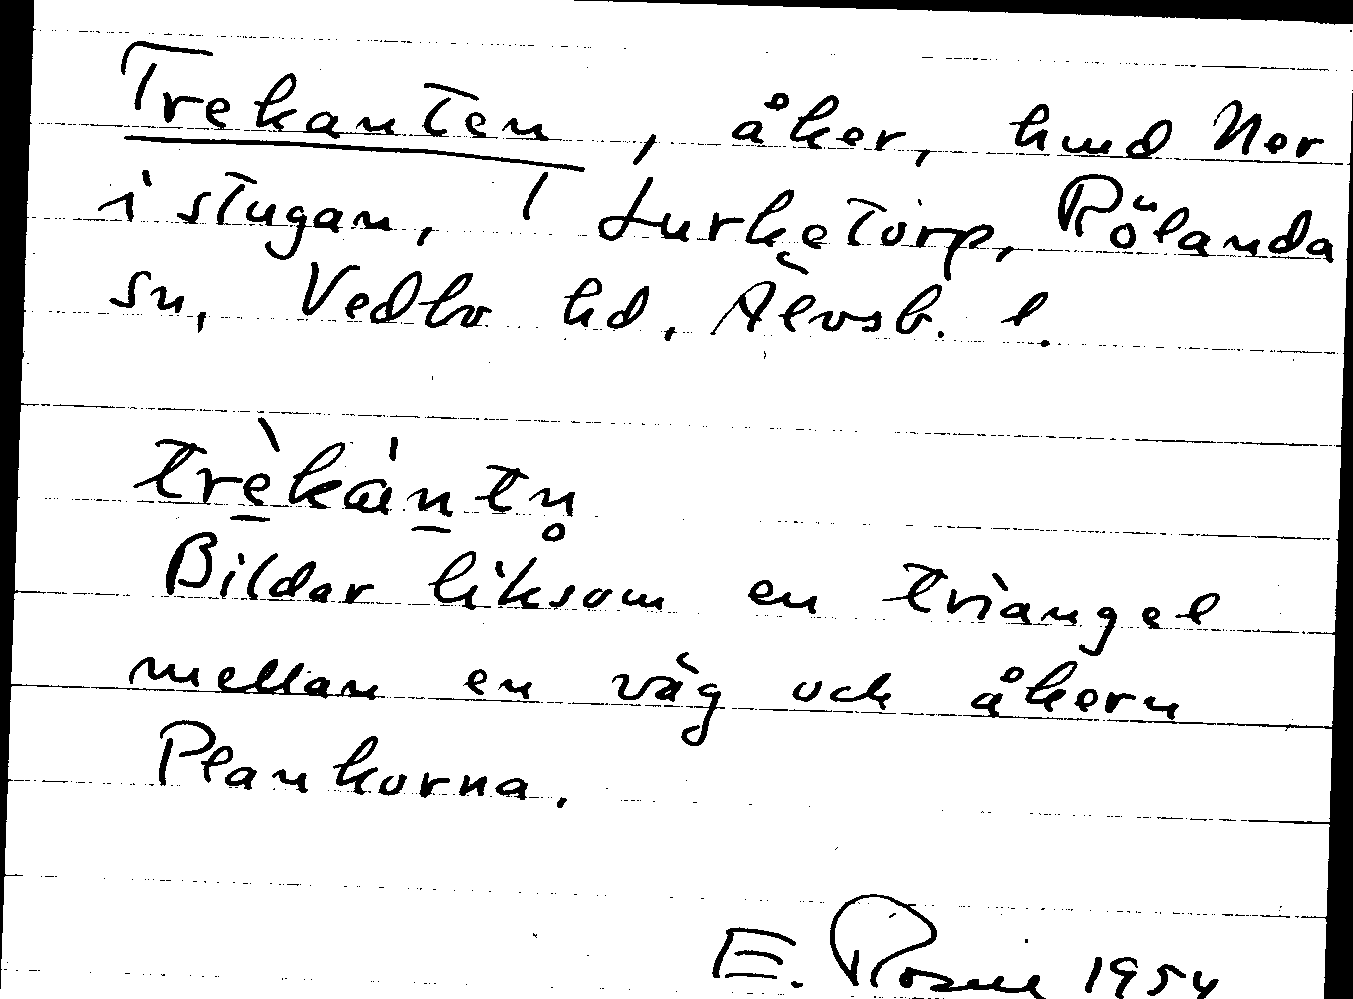 Trekanten, åker, hmd Ner
i stugan, 1 Lurketorp, Rölanda
sn, Vedbo hd, Älvsb. l.
trèkántn̥
Bildar liksom en triangel
mellan en väg och åkern
Plankorna.
E. Rosin 1954